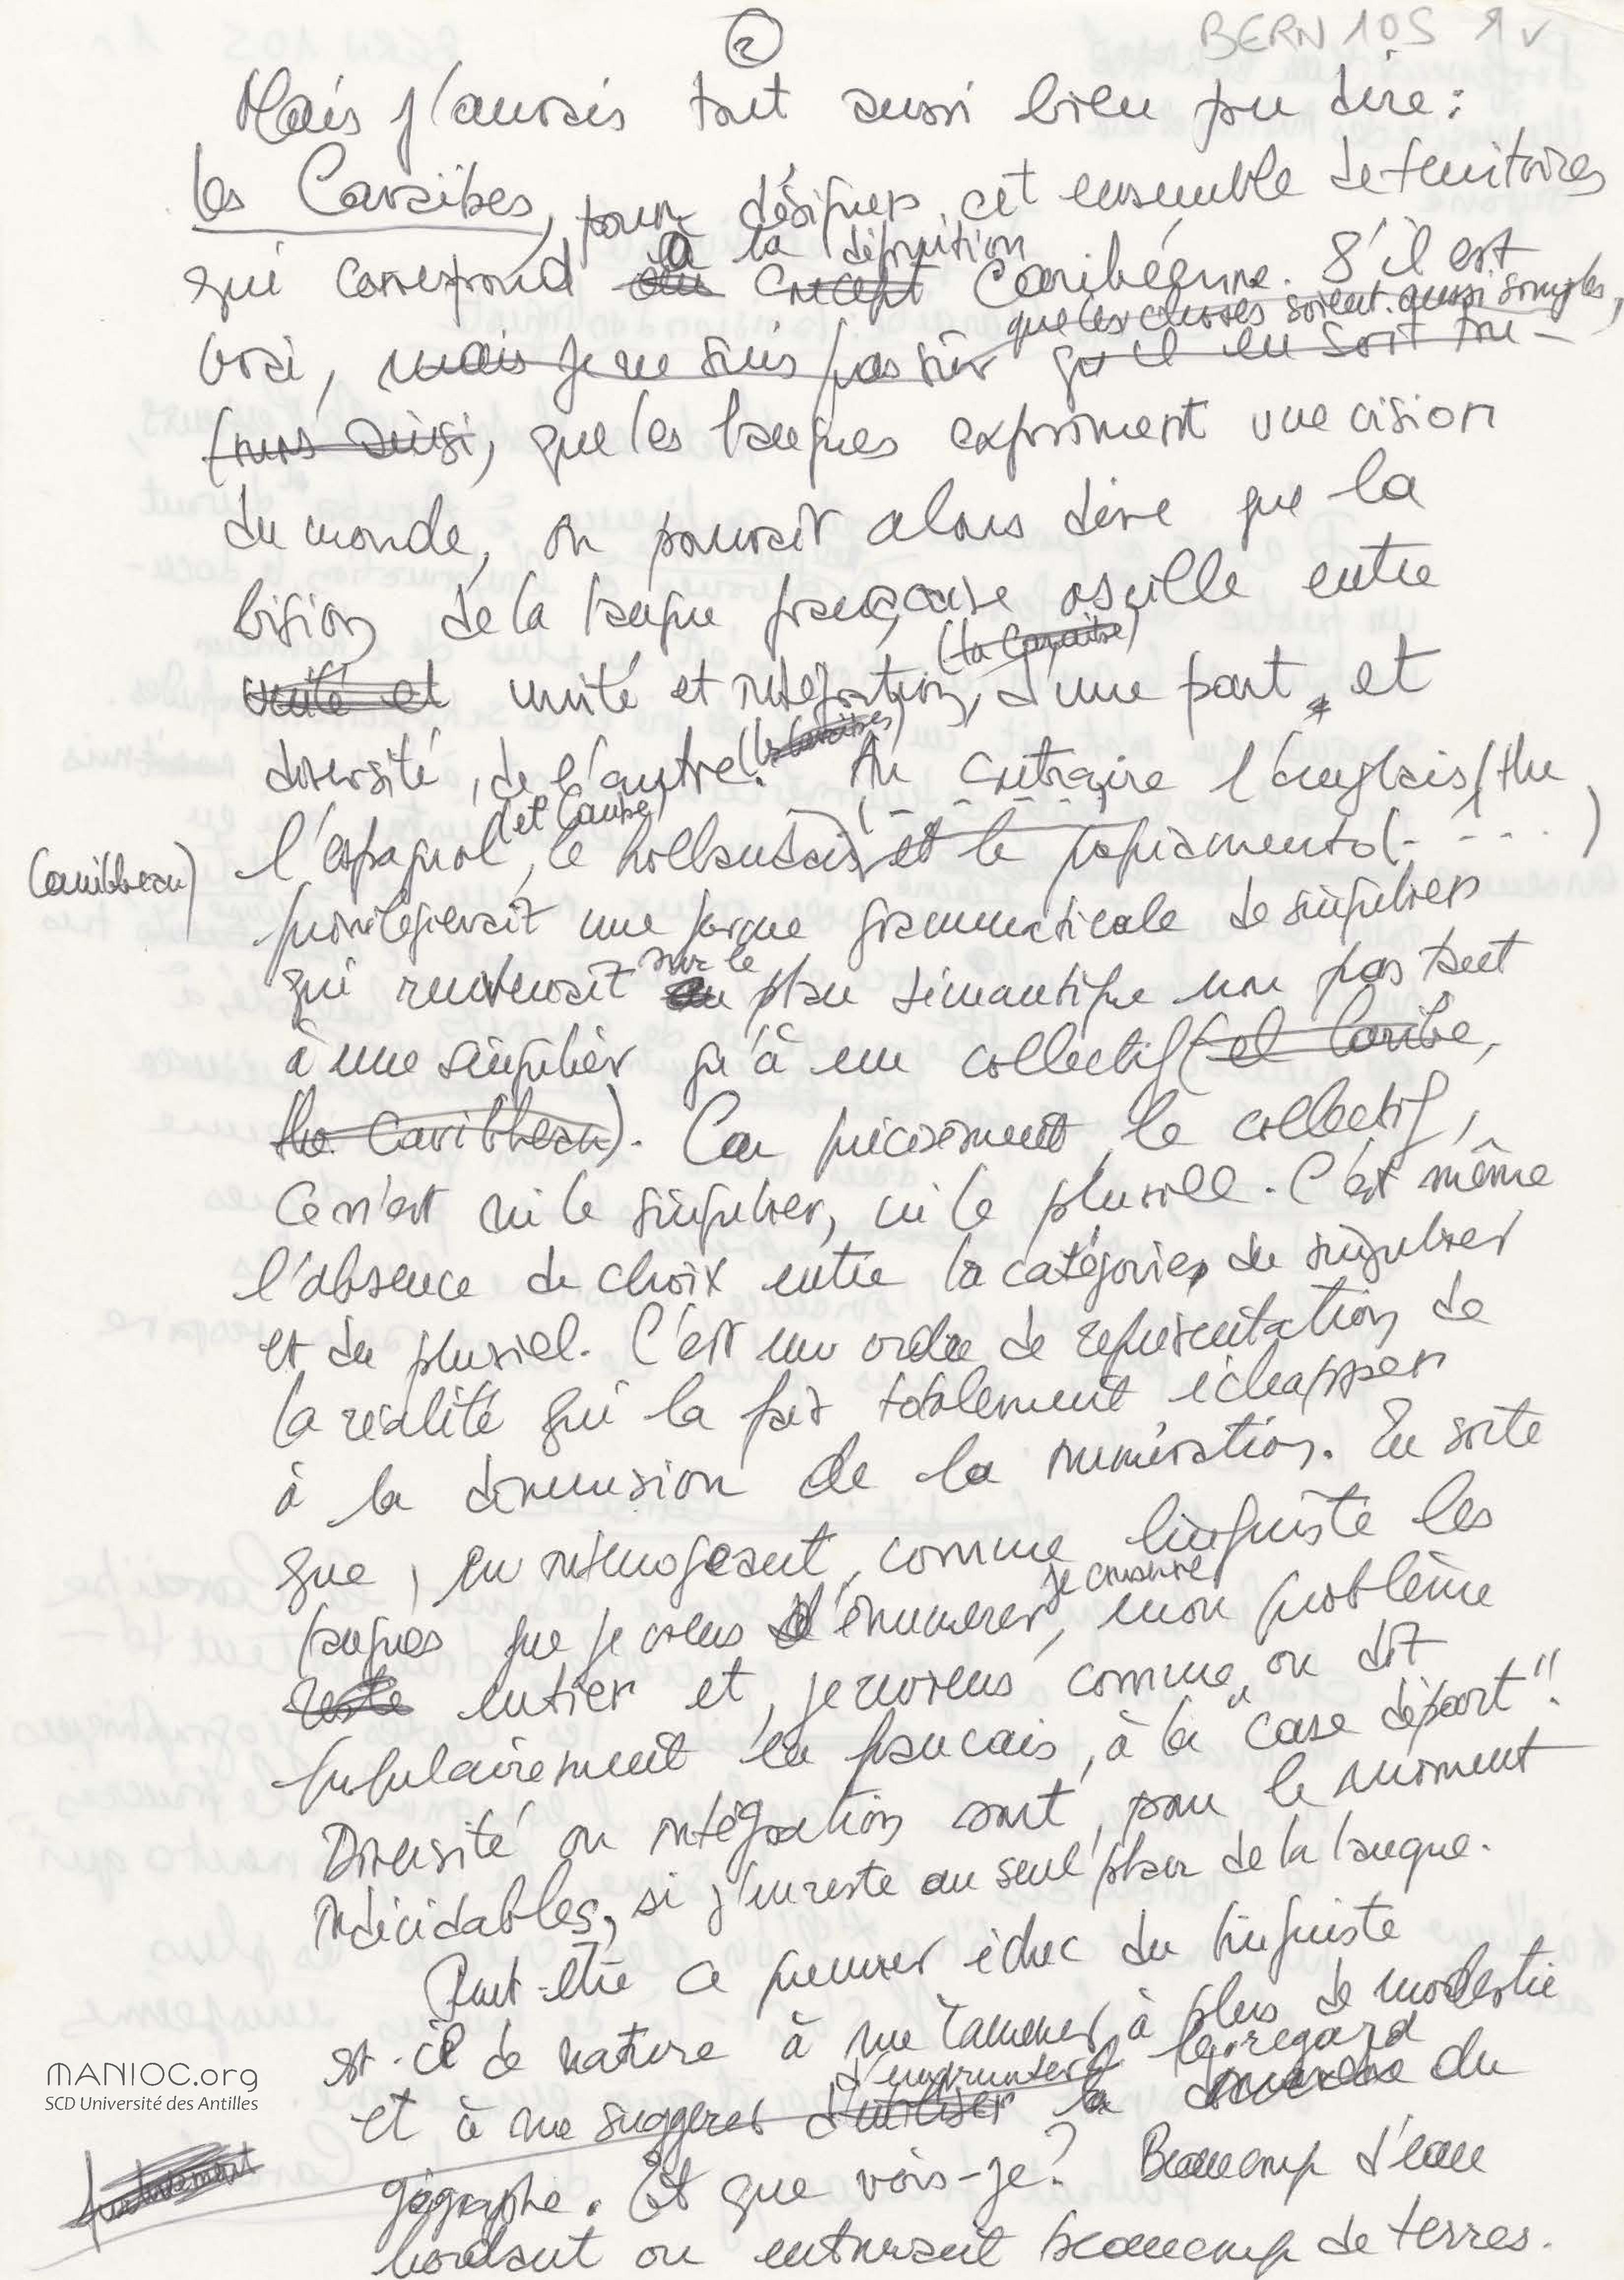 ②
BERN 105 1v
Mais j'aurais tout aussi bien pu dire :
les Caraïbes, pour désigner cet ensemble de territoires
à la définition
qui correspond au concept Caribéenne. S'il est
que les choses soient aussi simples,
vrai, mais je ne suis pas sûr qu'il en soit tou-
jours ainsi, que les langues expriment une vision
du monde, on pourrait alors dire que la
vision de la langue française oscille entre
(la Caraïbe)
unité et unité et intégration, d'une part, et
(les Caraïbes)
diversité, de l'autre. Au contraire l'anglais (the
Caribbean)
(et Caribe)
l'espagnol, le hollandais (- - - -) et le papiamento (- - - - )
privilégierait une forme grammaticale de singulier
sur le
qui renverrait au plan sémantique non pas tant
à une singulier qu'à un collectif (el Caribe,
the Caribbean). Car précisément, le collectif,
Ce n'est ni le singulier, ni le pluriel. C'est même
l'absence de choix entre la catégories du singulier
et du pluriel. C'est un ordre de représentation de
la réalité qui la fait totalement échapper
à la dimension de la numération. En sorte
que, en interrogeant, comme linguiste les
je conserve
langues que je viens d'énumerer, mon problème
reste entier et, je reviens comme on dit
populairement en francais, à la "case départ".
Diversité ou intégration sont, pour le moment
indécidables, si j'en reste au seul plan de la langue.
Peut-être ce premier échec du linguiste
est-il de nature à me ramener à plus de modestie
d'emprunter le regard
et à me suggerer d'utiliser la du
géographe. Et que vois-je? Beaucoup d'eau
bordant ou entourant beaucoup de terres.
MANIOC.org
SCD Université des Antilles